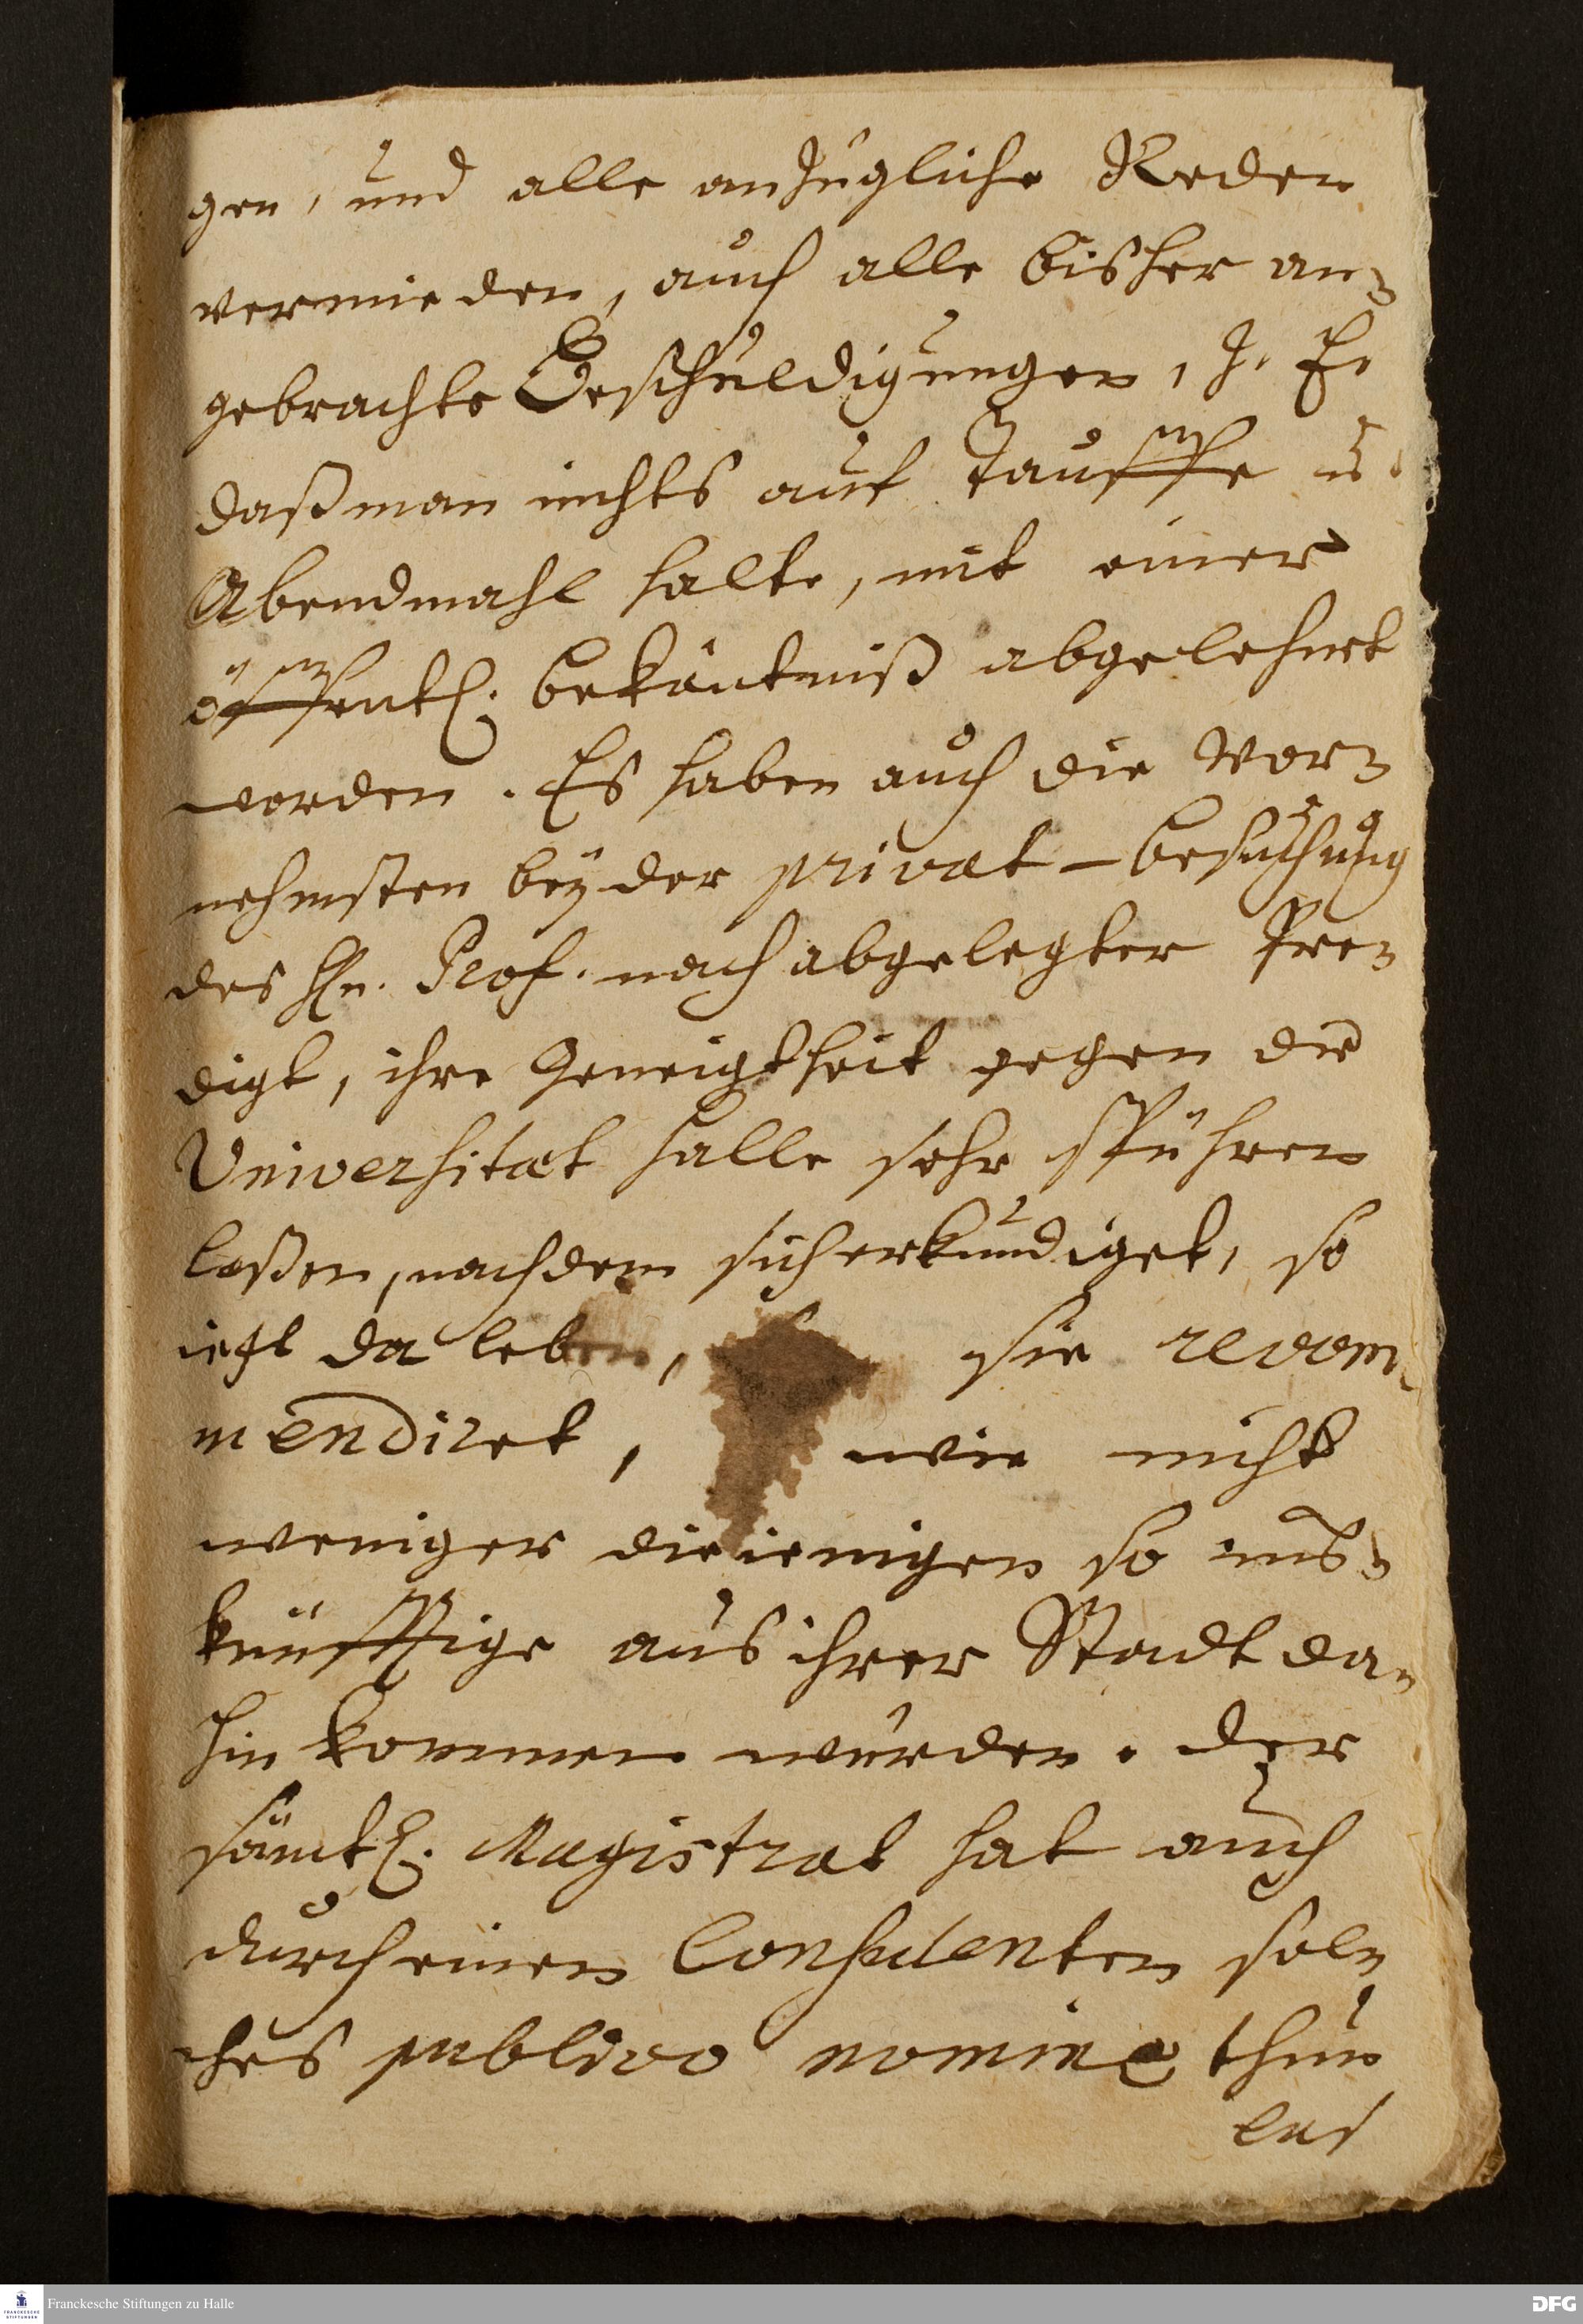 gen, und alle anzügliche Reden
vermieden, auch alle bisher an-
gebrachte Beschuldigungen, z. E.
daß man nichts auf Tauffe u.
Abendmahl halte, mit einer
öffentl. bekäntniß abgelehnt
worden. Es haben auch die Vor-
nehmsten bey der privat-besuchung
des Hn. Prof. nach abgelegter Pre-
digt, ihre Geneigtheit gegen die
Universitæt Halle sehr spühren
laßen, nach dem sich erkundiget, so
ietzt da leben, sie recom-
mendiret, wie nicht
weniger die ienigen so ins-
künfftige aus ihrer Stadt da-
hin kommen würden. Der
sämtl. Magistrat hat auch
durch einen Consulenten sol-
ches publico nomine thun
las
Franckesche Stiftungen zu Halle
DFG